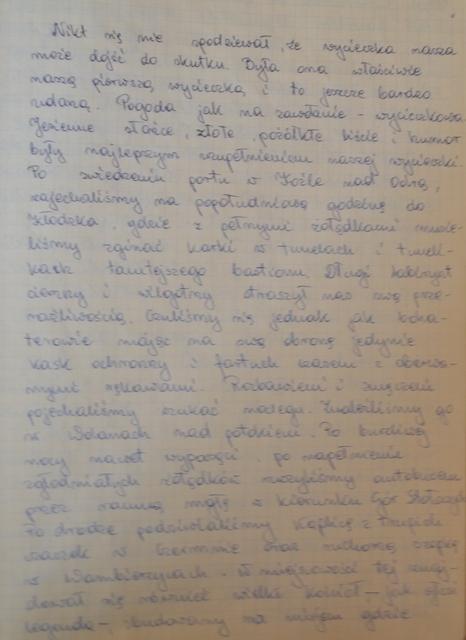 Nikt się nie spodziewał, że wycieczka nasza
może dojść do skutku. Była ona właściwie
naszą pierwszą wycieczką i to jeszcze bardzo
udaną. Pogoda jak na zawołanie - wycieczkowa.
Jesienne słońce, złote, pożółkłe liście i humor
były najlepszym uzupełnieniem naszej wycieczki.
Po zwiedzeniu portu w Koźle nad Odrą,
zajechaliśmy na popołudniową godzinę do
Kłodzka, gdzie z pełnymi żołądkami musie-
liśmy zginać karki w tunelach i tuneli-
kach tamtejszego bastionu. Długi labirynt
ciemny i wilgotny straszył nas swą prze-
raźliwością. Czuliśmy się jednak jak boha-
terowie mając na swą obronę jedynie
kask ochronny i fartuch czasem z oberwa-
nymi rękawami. Rozbawieni i zmęczeni
pojechaliśmy szukać noclegu. Znaleźliśmy go
w Wolanach nad potokiem. Po burzliwej
nocy nawet wypoczęci, po napełnieniu
zgłodniałych żołądków ruszyliśmy autobusem
przez ranną mgłę w kierunku Gór Stołowych
Po drodze podziwialiśmy Kaplicę z trupich
czaszek w Czermnie oraz ruchomą szopkę
w Wambierzycach. W miejscowości tej znaj-
dował się również wielki kościół - jak głosi
legenda - zbudowany na miejscu gdzie